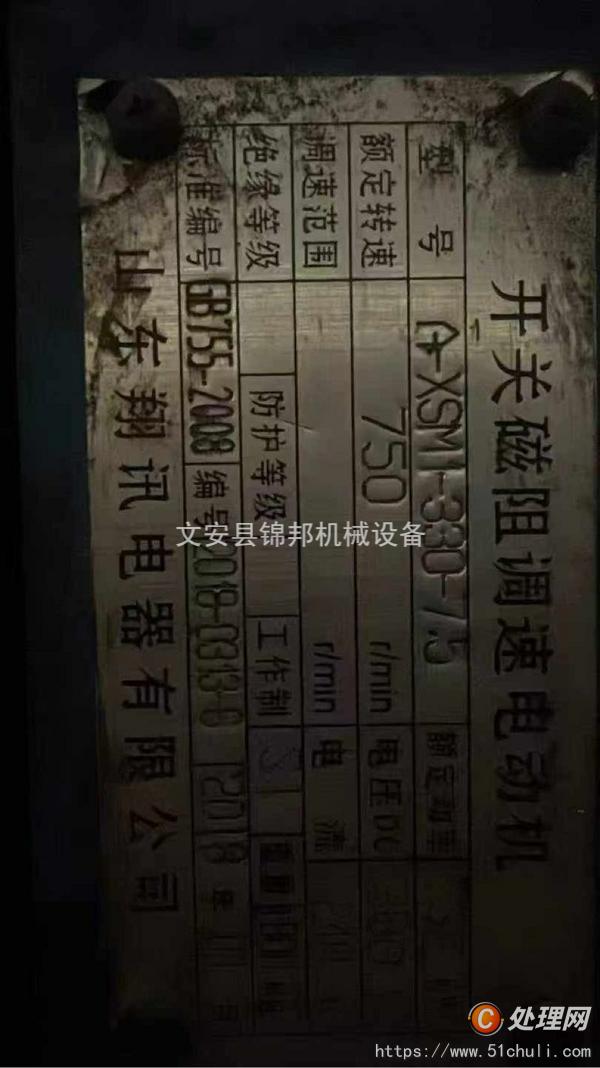 开关磁阻调速电动机
型号 XSM1-330-7.5 额定功率
额定转速 750 r/min 电压DC
调速范围 r/min 电流
绝缘等级 防护等级 工作制
标准编号 GB755-2008 编号 2018-0313 2018 年 月
山东翔讯电器有限公司
文安县锦邦机械设备
C 处理网
https://www.51chuli.com